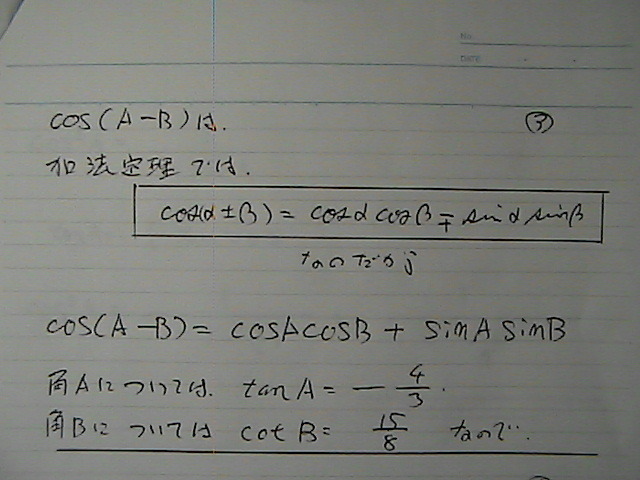 No.
DATE
cos(A-B)は.
③
加法定理では.
cos(α±β)= cosα cosβ ∓ sinα sinβ
なのだから
cos(A-B)= cosAcosB + sinA sinB
角Aについては. tanA= - 4/3.
角Bについては cotB= 15/8 なので..